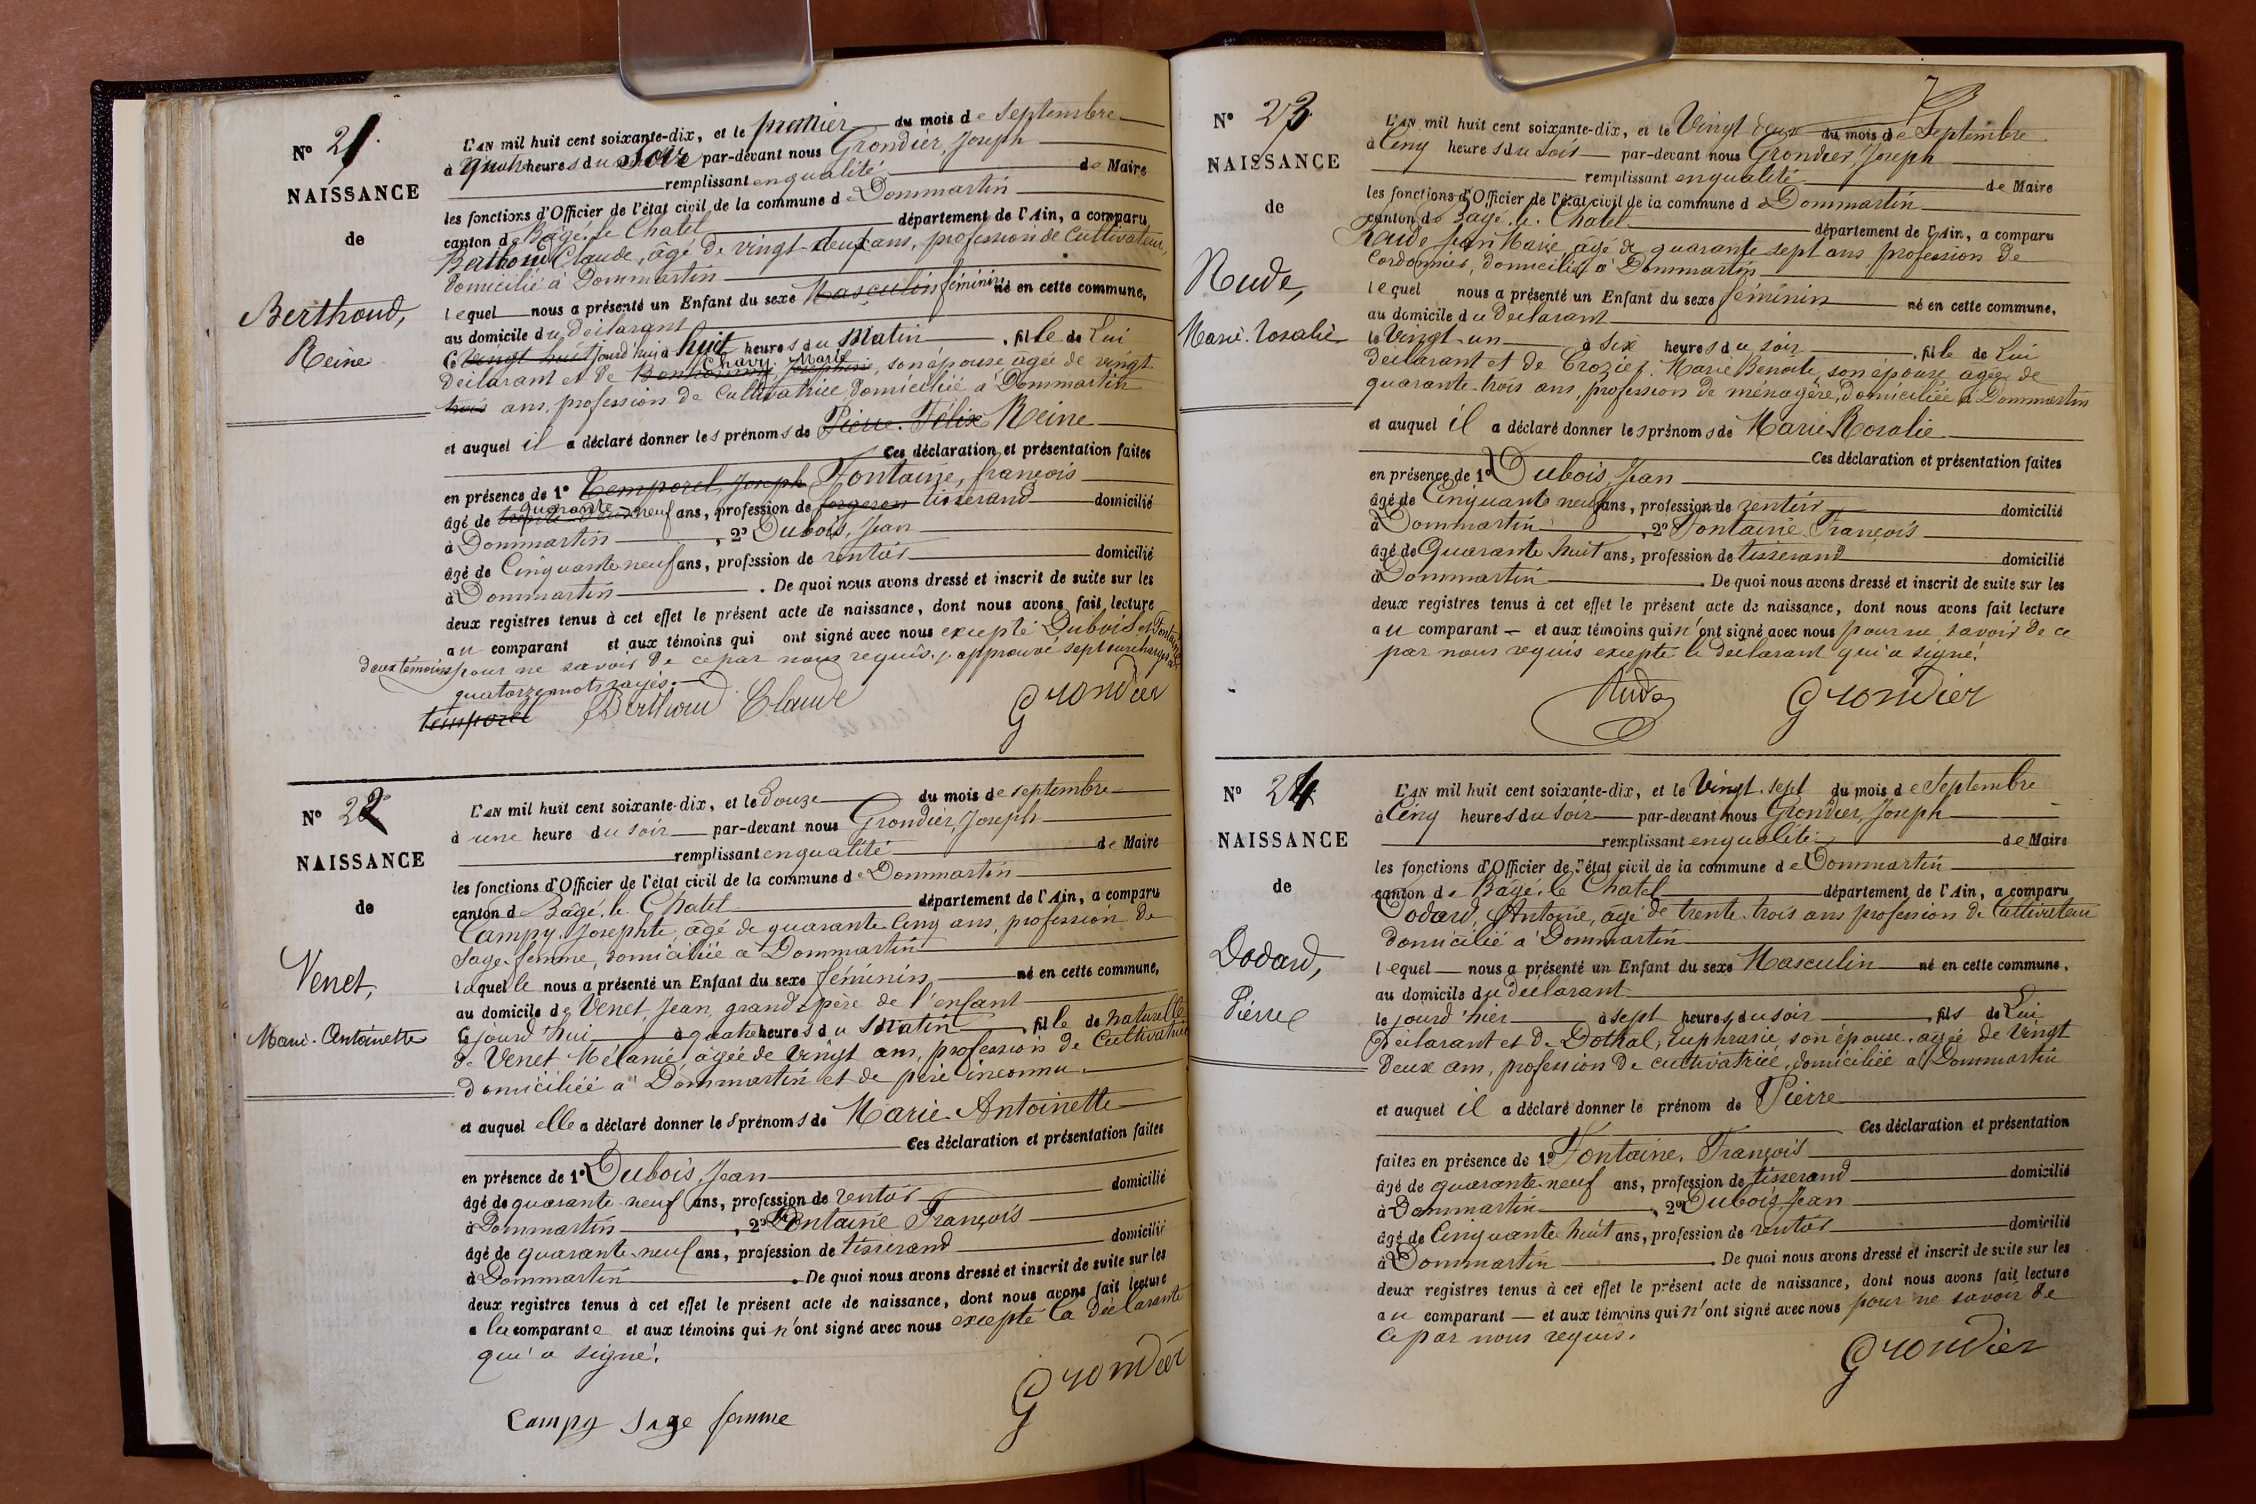 N° 21
NAISSANCE
de
Berthoud,
Reine
L'AN mil huit cent soixante-dix, et le premier du mois de Septembre
à quatre heures du Soir par-devant nous Grondier, Joseph
remplissant en qualité de Maire
les fonctions d'Officier de l'état civil de la commune de Dommartin
canton de Bâgé-le-Chatel département de l'Ain, a comparu
Berthoud Claude, âgé de vingt-deux ans, profession de Cultivateur,
domicilié à Dommartin
lequel nous a présenté un Enfant du sexe Masculin féminin né en cette commune,
au domicile du déclarant
ce vingt huit jourd'hui à huit heures du Matin, fille de Lui
Chavy Marie
déclarant et de Joséphine, son épouse âgée de vingt
trois ans, profession de Cultivatrice, domiciliée à Dommartin
et auquel il a déclaré donner les prénoms de Pierre-Félix Reine
Ces déclaration et présentation faites
en présence de 1° Temporel, Joseph Fontaine, françois
âgé de quarante neuf ans, profession de forgeron tisserand domicilié
à Dommartin, 2° Dubois, Jean
âgé de Cinquante neuf ans, profession de rentier domicilié
à Dommartin. De quoi nous avons dressé et inscrit de suite sur les
deux registres tenus à cet effet le présent acte de naissance, dont nous avons fait lecture
au comparant et aux témoins qui ont signé avec nous excepté Dubois et Fontaine
deux témoins pour ne savoir de ce par nous requis. j'approuve sept surcharges et
quatorze mots rayés.
temporel Berthoud Claude Grondier
N° 22
NAISSANCE
de
Venet,
Marie-Antoinette
L'AN mil huit cent soixante-dix, et le Douze du mois de septembre
à une heure du soir par-devant nous Grondier, Joseph
remplissant en qualité de Maire
les fonctions d'Officier de l'état civil de la commune de Dommartin
canton d Bâgé-le-Chatel département de l'Ain, a comparu
Campy, Josephte, âgé de quarante Cinq ans, profession de
Sage-femme, domiciliée à Dommartin
laquelle nous a présenté un Enfant du sexe féminin né en cette commune,
au domicile de Venet, Jean, grand-père de l'enfant
cejourd'hui à quatre heures du Matin, fille de naturelle
de Venet Mélanie, âgée de Vingt ans, profession de Cultivatrice
domiciliée à Dommartin et de père inconnu
et auquel elle a déclaré donner les prénoms de Marie-Antoinette
Ces déclaration et présentation faites
en présence de 1° Dubois, Jean
âgé de quarante-neuf ans, profession de rentier domicilié
à Dommartin, 2° Fontaine François
âgé de quarante-neuf ans, profession de tisserand domicilié
à Dommartin. De quoi nous avons dressé et inscrit de suite sur les
deux registres tenus à cet effet le présent acte de naissance, dont nous avons fait lecture
a la comparante et aux témoins qui n'ont signé avec nous excepté la déclarante
qui a signé.
Grondier
Campy Sage femme
7
N° 23
NAISSANCE
de
Rude,
Marie-Rosalie
L'AN mil huit cent soixante-dix, et le Vingt-deux du mois de Septembre
à Cinq heures du soir par-devant nous Grondier, Joseph
remplissant en qualité de Maire
les fonctions d'Officier de l'état civil de la commune de Dommartin
canton de Bagé-le-Chatel département de l'Ain, a comparu
Rude Jean Marie, âgé de quarante sept ans profession de
Cordonnier, domicilié à Dommartin
lequel nous a présenté un Enfant du sexe féminin né en cette commune,
au domicile du Déclarant
le Vingt-un à Six heures du soir, fille de Lui
déclarant et de Crozier, Marie Benoite, son épouse âgée de
quarante-trois ans, profession de ménagère, domiciliée à Dommartin
et auquel il a déclaré donner les prénoms de Marie Rosalie
Ces déclaration et présentation faites
en présence de 1° Dubois, Jean
âgé de Cinquante neuf ans, profession de rentier domicilié
à Dommartin, 2° Fontaine François
âgé de Quarante huit ans, profession de tisserand domicilié
à Dommartin. De quoi nous avons dressé et inscrit de suite sur les
deux registres tenus à cet effet le présent acte de naissance, dont nous avons fait lecture
au comparant et aux témoins qui n'ont signé avec nous pour ne savoir de ce
par nous requis excepté le déclarant qui a signé.
Rude Grondier
N° 24
NAISSANCE
de
Dodard,
Pierre
L'AN mil huit cent soixante-dix, et le Vingt-sept du mois de Septembre
à Cinq heures du soir par-devant nous Grondier, Joseph
remplissant en qualité de Maire
les fonctions d'Officier de l'état civil de la commune de Dommartin
canton de Bâgé-le-Chatel département de l'Ain, a comparu
Dodard, Antoine, âgé de trente-trois ans profession de Cultivateur
domicilié à Dommartin
lequel nous a présenté un Enfant du sexe Masculin né en cette commune,
au domicile du déclarant
le jourd'hier à sept heures du soir, fils de Lui
Déclarant et de Dothal, Euphrasie, son épouse, âgée de Vingt
deux ans, profession de cultivatrice, domiciliée à Dommartin
et auquel il a déclaré donner le prénom de Pierre
Ces déclaration et présentation
faites en présence de 1° Fontaine, François
âgé de quarante-neuf ans, profession de tisserand domicilié
à Dommartin, 2° Dubois, Jean
âgé de Cinquante huit ans, profession de rentier domicilié
à Dommartin. De quoi nous avons dressé et inscrit de suite sur les
deux registres tenus à cet effet le présent acte de naissance, dont nous avons fait lecture
au comparant et aux témoins qui n'ont signé avec nous pour ne savoir de
ce par nous requis.
Grondier